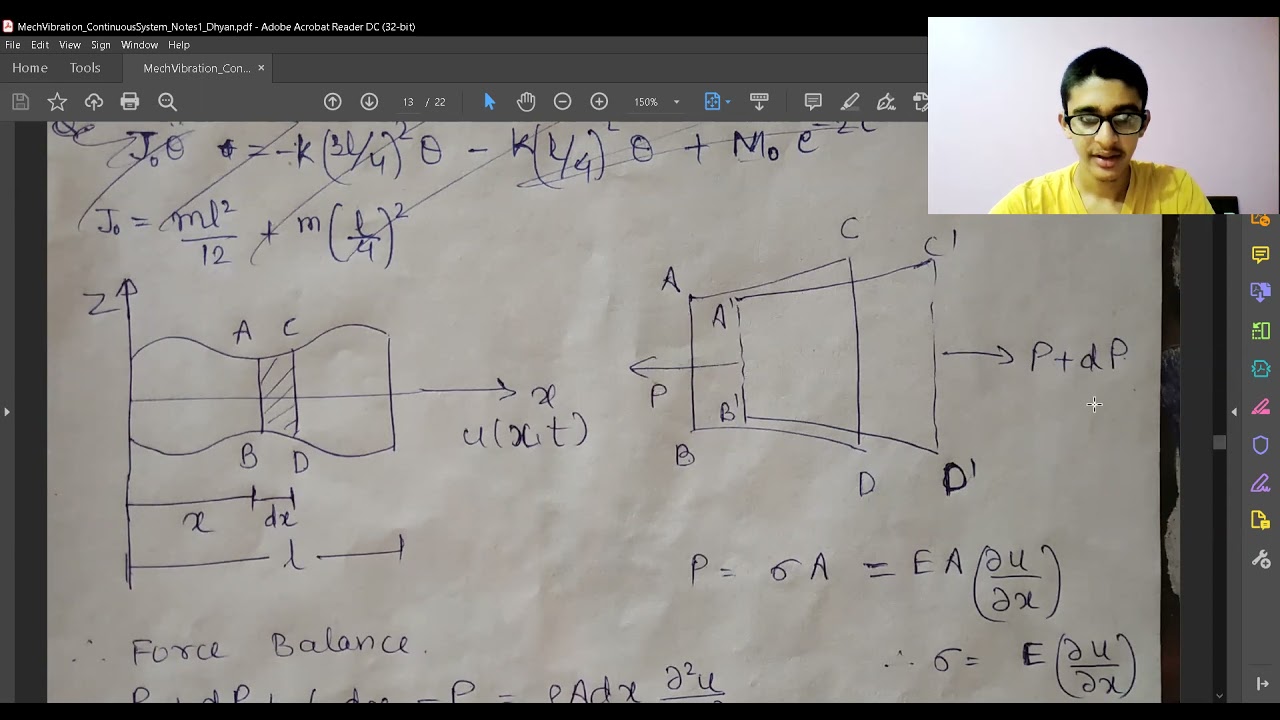 MechVibration_ContinuousSystem_Notes1_Dhyan.pdf - Adobe Acrobat Reader DC (32-bit)
File Edit View Sign Window Help
Home Tools MechVibration_Con... ×
13 / 22 150%
J₀θ̈ = -k(3l/4)²θ - k(l/4)²θ + M₀ e
J₀ = ml²/12 + m(l/4)²
Z
A C
B D
x
u(x,t)
x dx
l
A C C'
A'
P P+dP
B'
B D D'
P = σA = EA(∂u/∂x)
∴ Force Balance.
∴ σ = E(∂u/∂x)
P + dP + f dx - P = ρAdx ∂²u